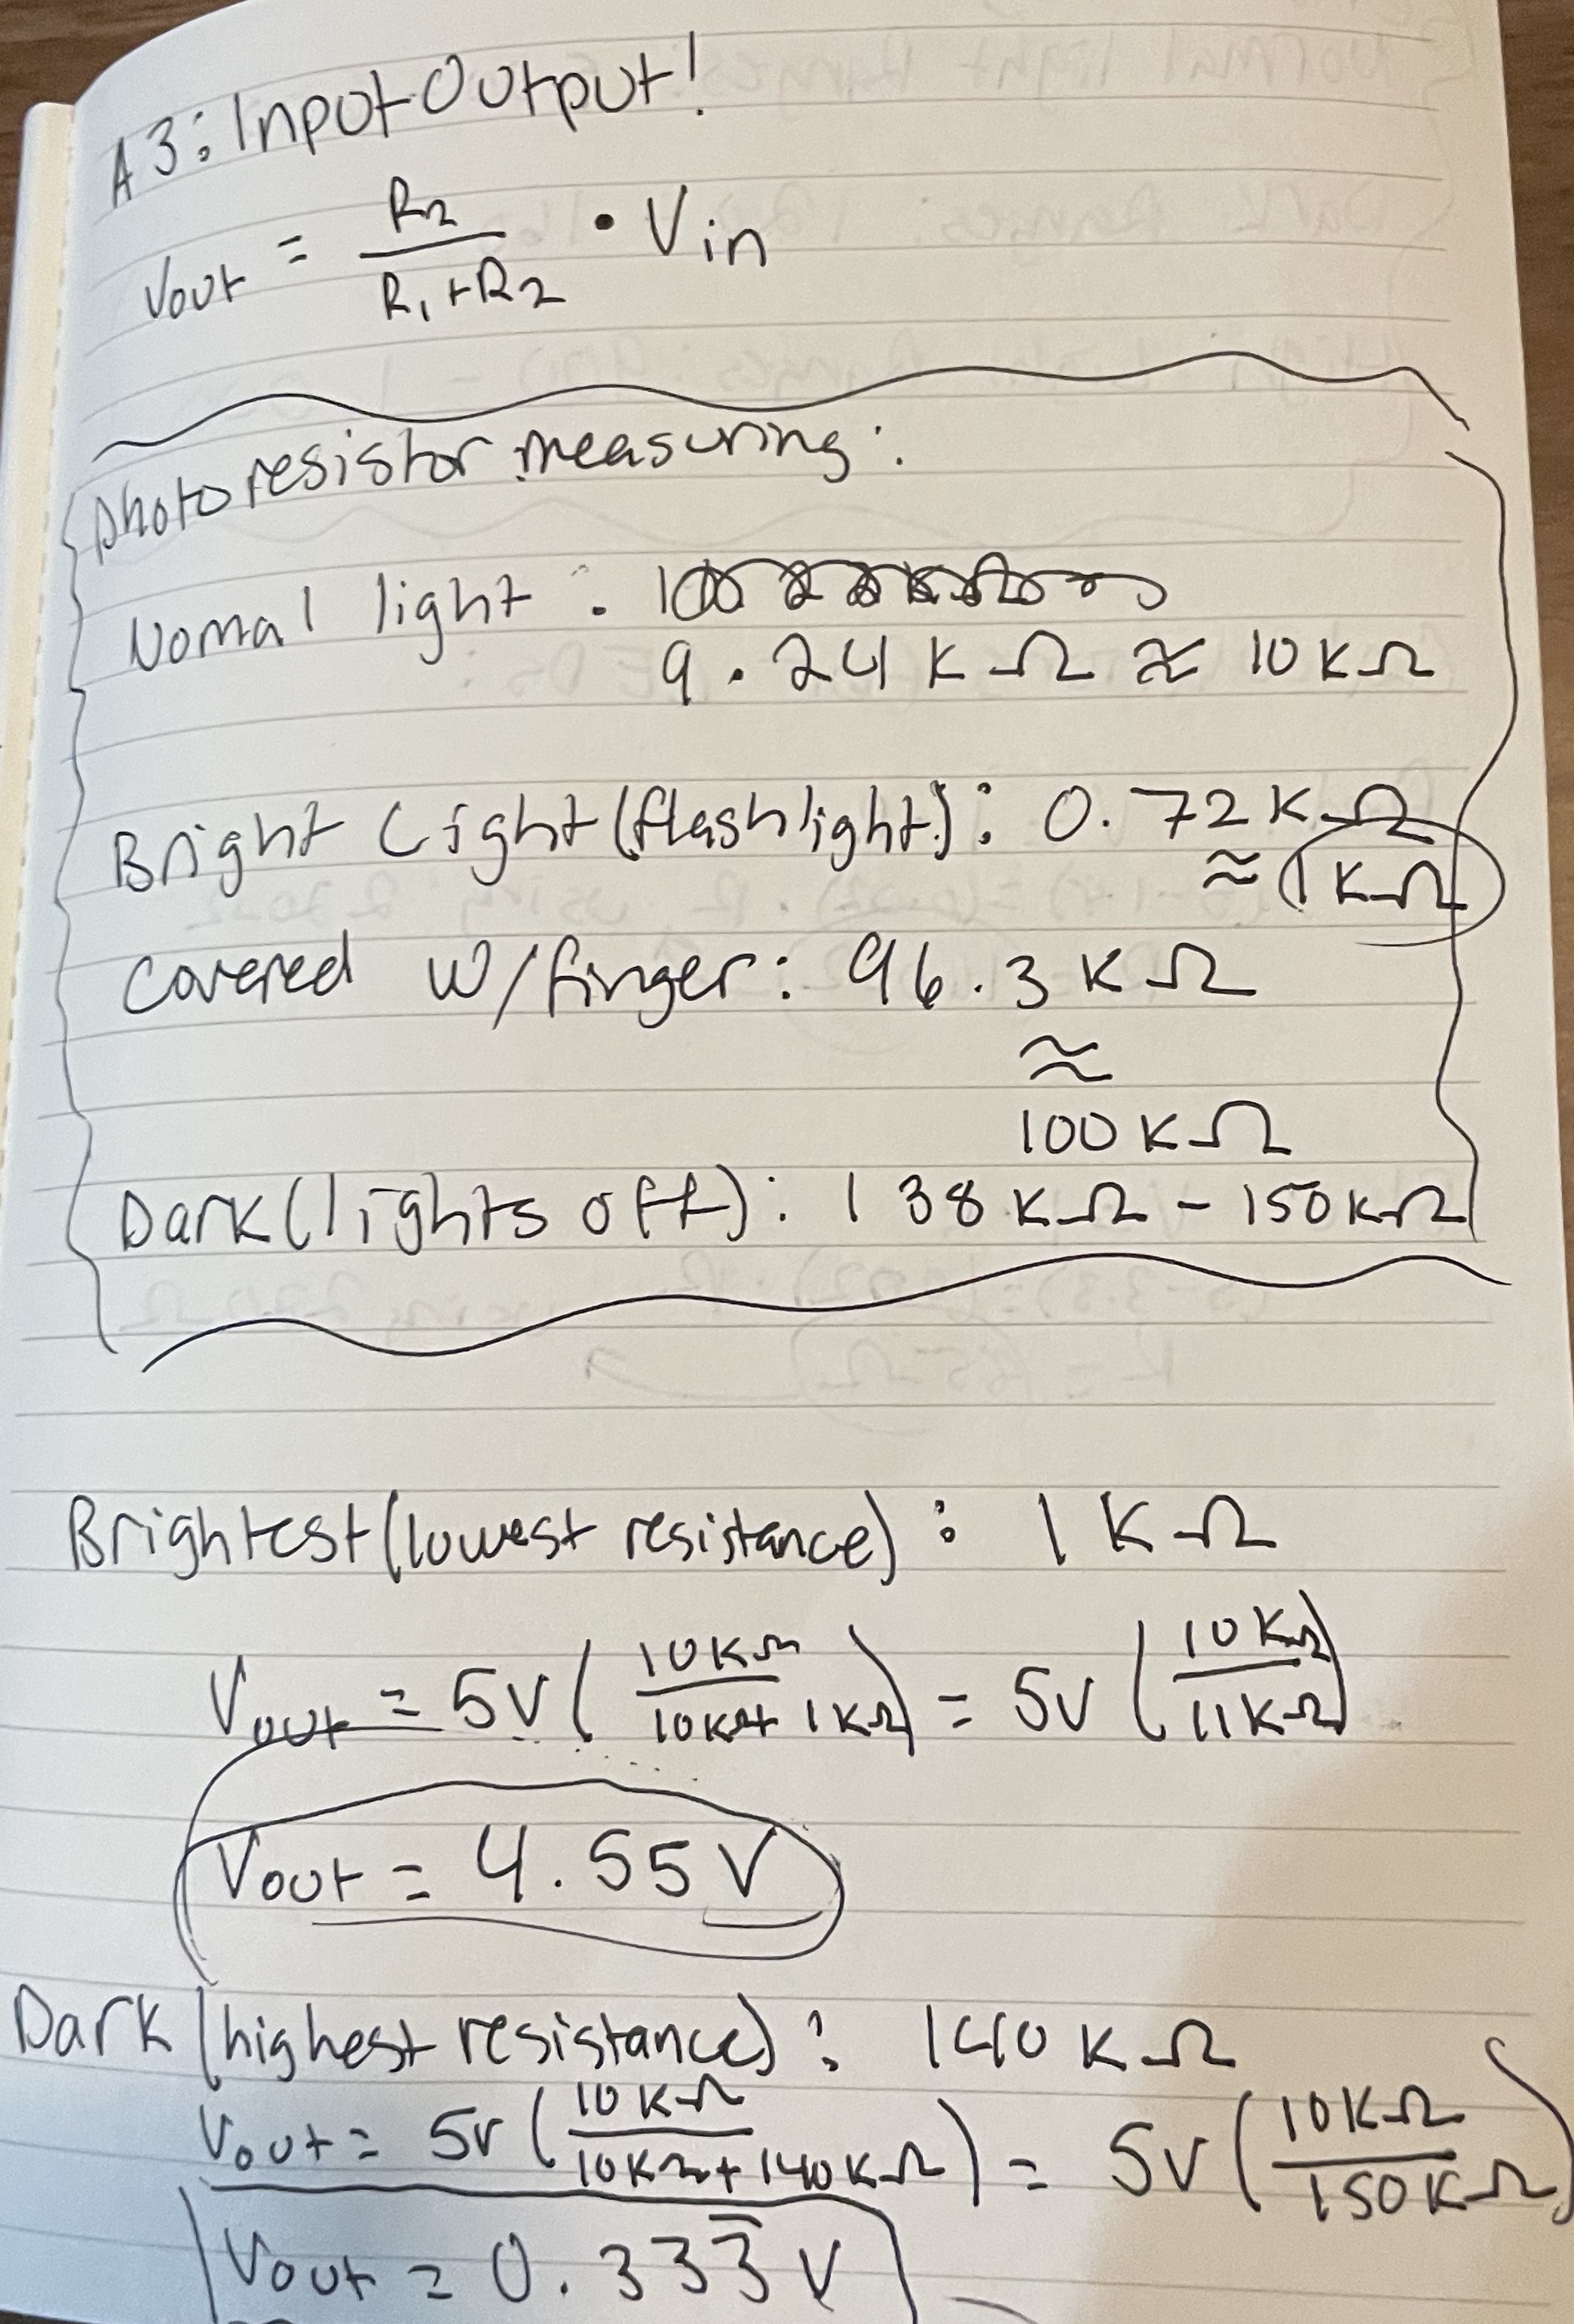 A3: Input Output!
Vout = R2 / (R1+R2) • Vin
photoresistor measuring:
Nomal light:
9.24 kΩ ≈ 10kΩ
Bright Light (flashlight): 0.72kΩ
≈ 1kΩ
covered w/finger: 96.3kΩ
≈
100kΩ
Dark (lights off): 138kΩ - 150kΩ
Brightest (lowest resistance): 1kΩ
Vout = 5V (10kΩ / 10kΩ + 1kΩ) = 5V (10kΩ / 11kΩ)
Vout = 4.55V
Dark (highest resistance): 140kΩ
Vout = 5V (10kΩ / 10kΩ + 140kΩ) = 5V (10kΩ / 150kΩ)
Vout = 0.333̅ V